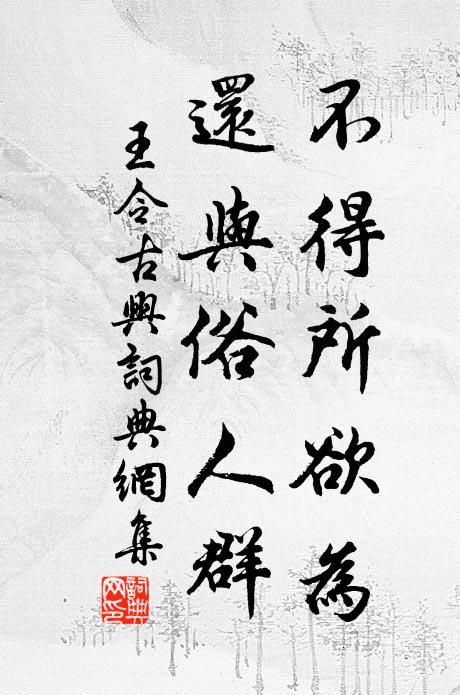 不得所欲為
還與俗人群
王令古興詞典網集
詞典網印